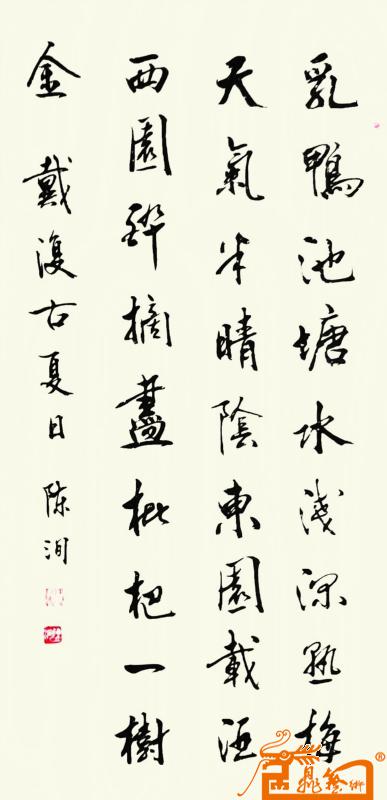 乳鴨池塘水淺深熟梅
天氣半晴陰東園載酒
西園醉摘盡枇杷一樹
金 戴復古夏日 陈洵